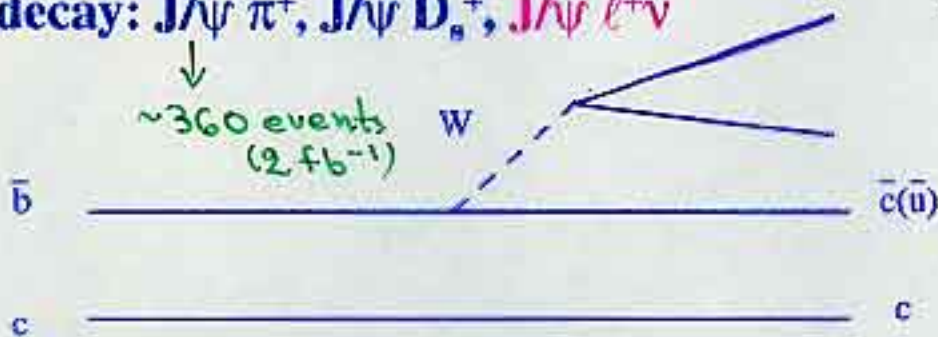 decay: J/ψ π⁺, J/ψ Dₛ⁺, J/ψ ℓ⁺ν
~360 events
(2 fb⁻¹)
W
b̄ c̄(ū)
c c